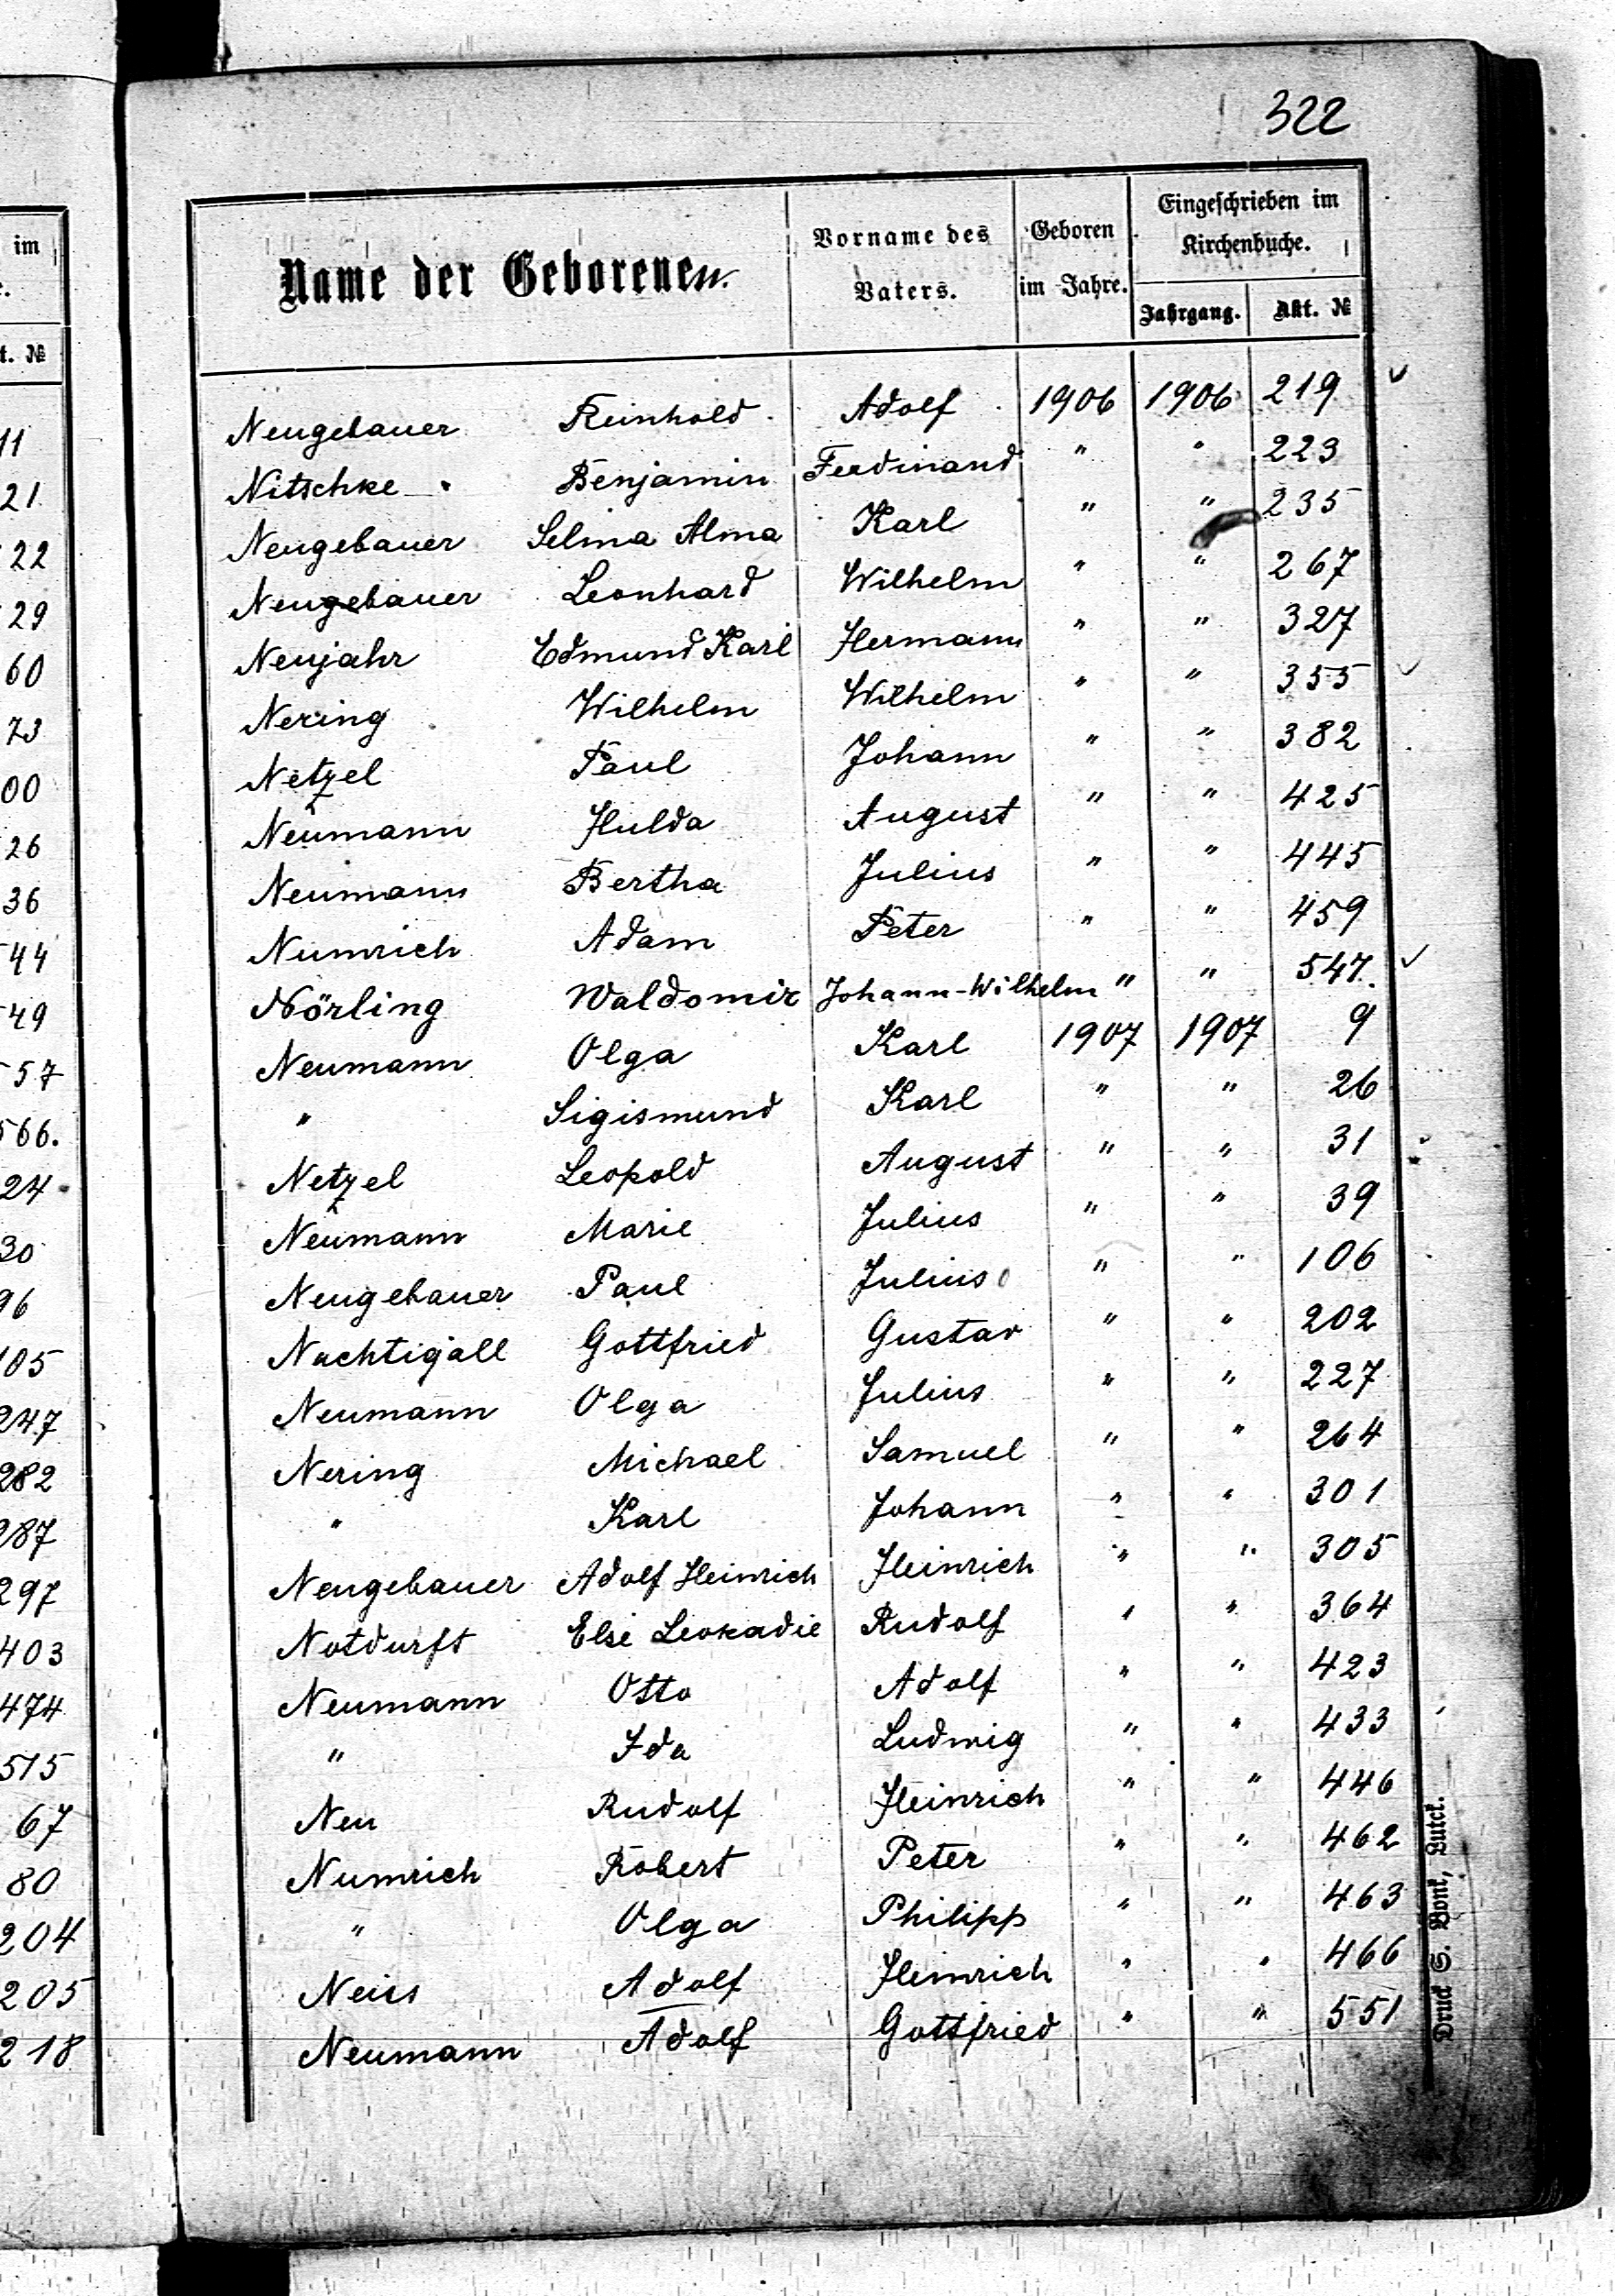 322
im
Name der Geborenen.
Vorname des Vaters.
Geboren im Jahre.
Eingeschrieben im Kirchenbuche.
Jahrgang.
Akt. №
t. №
11
21
22
29
60
73
00
26
36
44
49
57
566.
24
30
96
105
247
282
287
297
403
474
515
67
80
204
205
218
Neugebauer Reinhold Adolf 1906 1906 219
Nitschke Benjamin Ferdinand " " 223
Neugebauer Selma Alma Karl " " 235
Neugebauer Leonhard Wilhelm " " 267
Neujahr Edmund Karl Hermann " " 327
Nering Wilhelm Wilhelm " " 355
Netzel Paul Johann " " 382
Neumann Hulda August " " 425
Neumann Bertha Julius " " 445
Numrich Adam Peter " " 459
Nörling Waldomir Johann-Wilhelm " " 547.
Neumann Olga Karl 1907 1907 9
" Sigismund Karl " " 26
Netzel Leopold August " " 31
Neumann Marie Julius " " 39
Neugebauer Paul Julius " " 106
Nachtigall Gottfried Gustav " " 202
Neumann Olga Julius " " 227
Nering Michael Samuel " " 264
" Karl Johann " " 301
Neugebauer Adolf Heinrich Heinrich " " 305
Notdurft Else Leokadie Rudolf " " 364
Neumann Otto Adolf " " 423
" Ida Ludwig " " 433
Neu Rudolf Heinrich " " 446
Numrich Robert Peter " " 462
" Olga Philipp " " 463
Neiss Adolf Heinrich " " 466
Neumann Adolf Gottfried " " 551
Druck S. Bonk, Lutck.